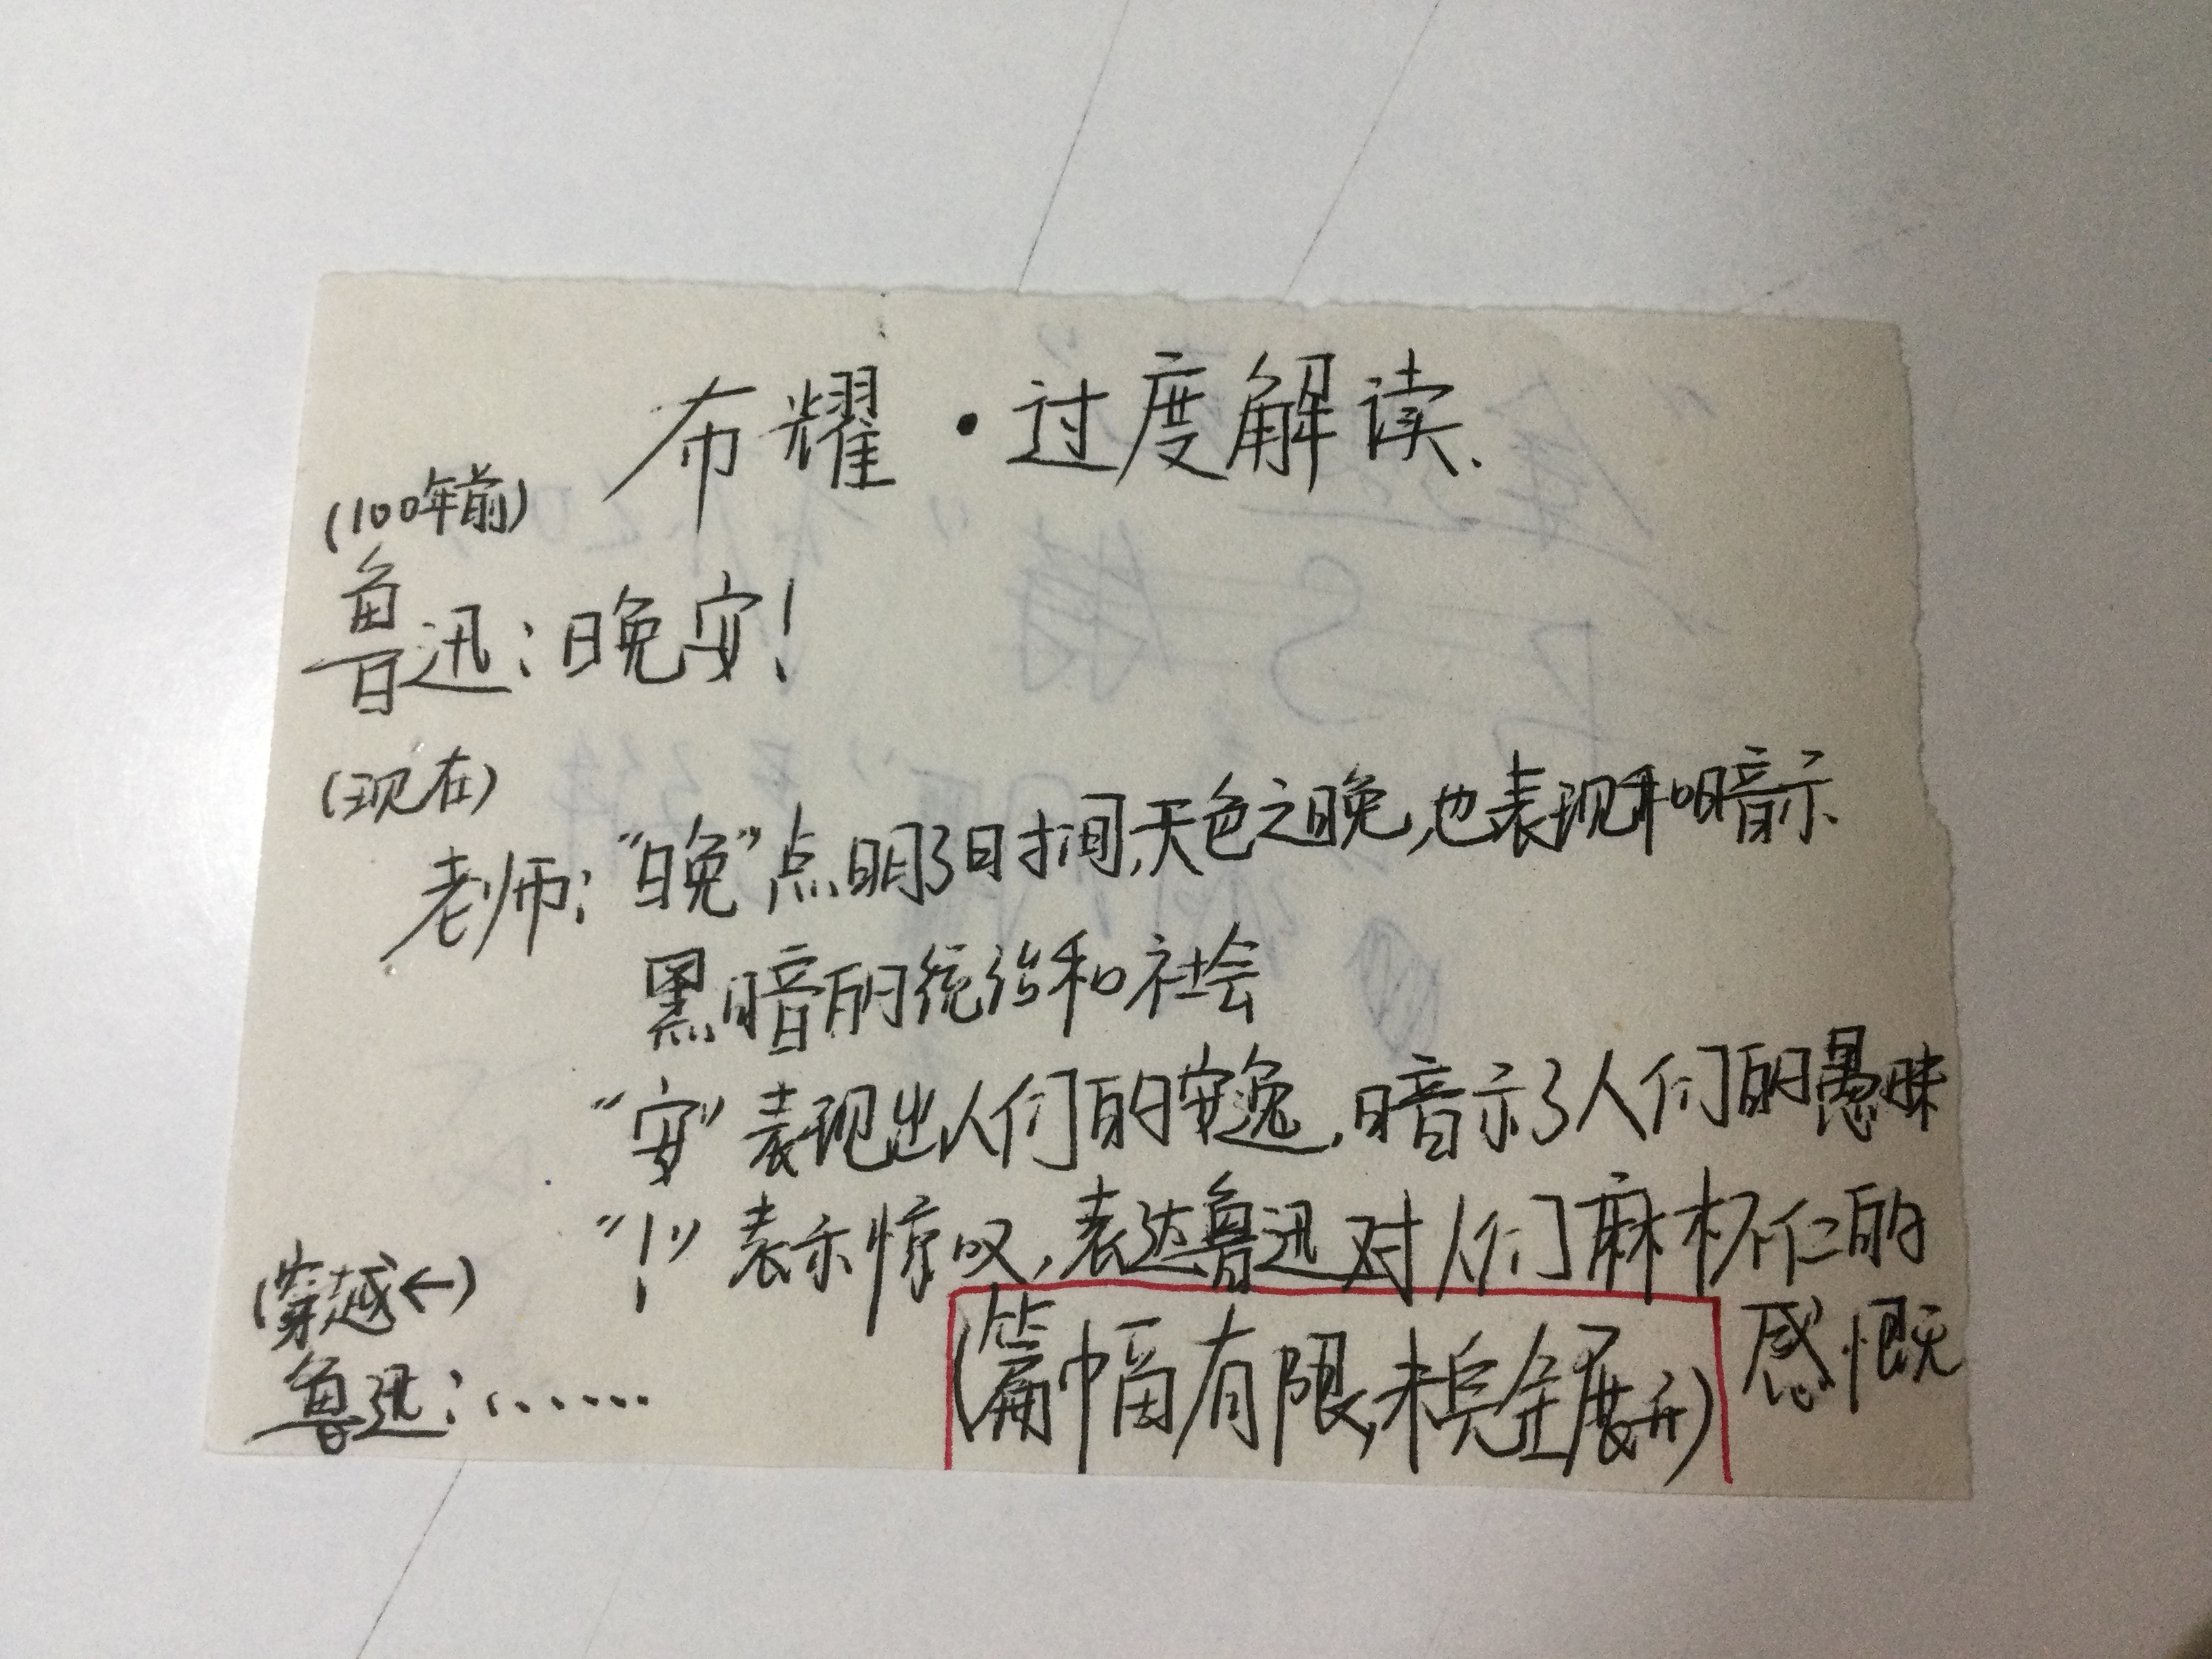 布耀·过度解读.
(100年前)
鲁迅：晚安！
(现在)
老师：“晚”点明了时间,天色之晚,也表现和暗示
黑暗的统治和社会
“安”表现出人们的安逸,暗示了人们的愚昧
“!”表示惊叹,表达鲁迅对人们麻木不仁的
感慨
(篇幅有限,未完全展开)
(穿越←)
鲁迅：……